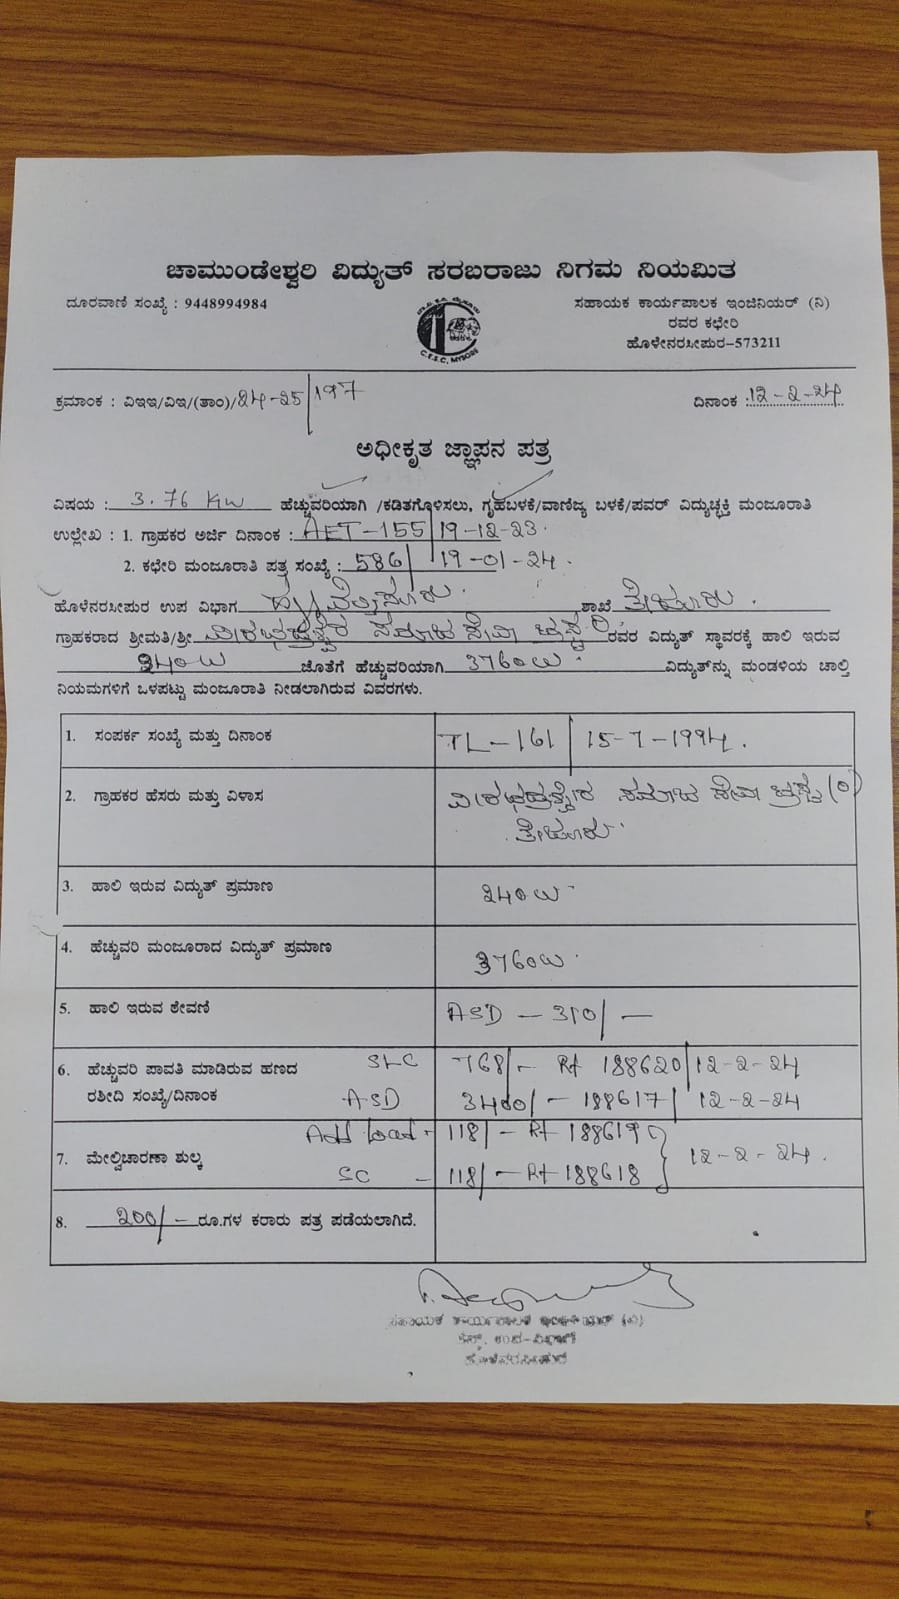 ಚಾಮುಂಡೇಶ್ವರಿ ವಿದ್ಯುತ್ ಸರಬರಾಜು ನಿಗಮ ನಿಯಮಿತ
ದೂರವಾಣಿ ಸಂಖ್ಯೆ : 9448994984
C.E.S.C, MYSORE
ಸಹಾಯಕ ಕಾರ್ಯಪಾಲಕ ಇಂಜಿನಿಯರ್ (ವಿ)
ರವರ ಕಛೇರಿ
ಹೊಳೇನರಸೀಪುರ-573211
ಕ್ರಮಾಂಕ : ವಿಇಇ/ವಿಇ/(ತಾಂ)/24-25/197 ದಿನಾಂಕ :12-2-24
ಅಧೀಕೃತ ಜ್ಞಾಪನ ಪತ್ರ
ವಿಷಯ : 3.76 KW ಹೆಚ್ಚುವರಿಯಾಗಿ /ಕಡಿತಗೊಳಿಸಲು, ಗೃಹಬಳಕೆ/ವಾಣಿಜ್ಯ ಬಳಕೆ/ಪವರ್ ವಿದ್ಯುಚ್ಛಕ್ತಿ ಮಂಜೂರಾತಿ
ಉಲ್ಲೇಖ : 1. ಗ್ರಾಹಕರ ಅರ್ಜಿ ದಿನಾಂಕ : AET-155/19-12-23.
2. ಕಛೇರಿ ಮಂಜೂರಾತಿ ಪತ್ರ ಸಂಖ್ಯೆ : 586/ 19-01-24.
ಹೊಳೆನರಸೀಪುರ ಉಪ ವಿಭಾಗ ಶಾಖೆ ತೇಜೂರು.
ಗ್ರಾಹಕರಾದ ಶ್ರೀಮತಿ/ಶ್ರೀ ವೀರಭದ್ರೇಶ್ವರ ಸಮಾಜ ಸೇವಾ ಟ್ರಸ್ಟ್ ರವರ ವಿದ್ಯುತ್ ಸ್ಥಾವರಕ್ಕೆ ಹಾಲಿ ಇರುವ
240W ಜೊತೆಗೆ ಹೆಚ್ಚುವರಿಯಾಗಿ 3760W. ವಿದ್ಯುತ್‌ನ್ನು ಮಂಡಳಿಯ ಚಾಲ್ತಿ
ನಿಯಮಗಳಿಗೆ ಒಳಪಟ್ಟು ಮಂಜೂರಾತಿ ನೀಡಲಾಗಿರುವ ವಿವರಗಳು.
1. ಸಂಪರ್ಕ ಸಂಖ್ಯೆ ಮತ್ತು ದಿನಾಂಕ TL-161 / 15-7-1994.
2. ಗ್ರಾಹಕರ ಹೆಸರು ಮತ್ತು ವಿಳಾಸ ವೀರಭದ್ರೇಶ್ವರ ಸಮಾಜ ಸೇವಾ ಟ್ರಸ್ಟ್ (ರಿ)
ತೇಜೂರು.
3. ಹಾಲಿ ಇರುವ ವಿದ್ಯುತ್ ಪ್ರಮಾಣ 240W
4. ಹೆಚ್ಚುವರಿ ಮಂಜೂರಾದ ವಿದ್ಯುತ್ ಪ್ರಮಾಣ 3760W.
5. ಹಾಲಿ ಇರುವ ಠೇವಣಿ ASD - 310/-
6. ಹೆಚ್ಚುವರಿ ಪಾವತಿ ಮಾಡಿರುವ ಹಣದ SLC 768/- Rt 188620/12-2-24
ರಶೀದಿ ಸಂಖ್ಯೆ/ದಿನಾಂಕ ASD 3400/- 188617/ 12-2-24
Add load - 118/- Rt 188619
7. ಮೇಲ್ವಿಚಾರಣಾ ಶುಲ್ಕ 12-2-24.
SC - 118/- Rt 188618
8. 200/- ರೂ.ಗಳ ಕರಾರು ಪತ್ರ ಪಡೆಯಲಾಗಿದೆ.
ಸಹಾಯಕ ಕಾರ್ಯಪಾಲಕ ಇಂಜಿನಿಯರ್ (ವಿ)
ಉಪ-ವಿಭಾಗ
ಹೊಳೆನರಸೀಪುರ